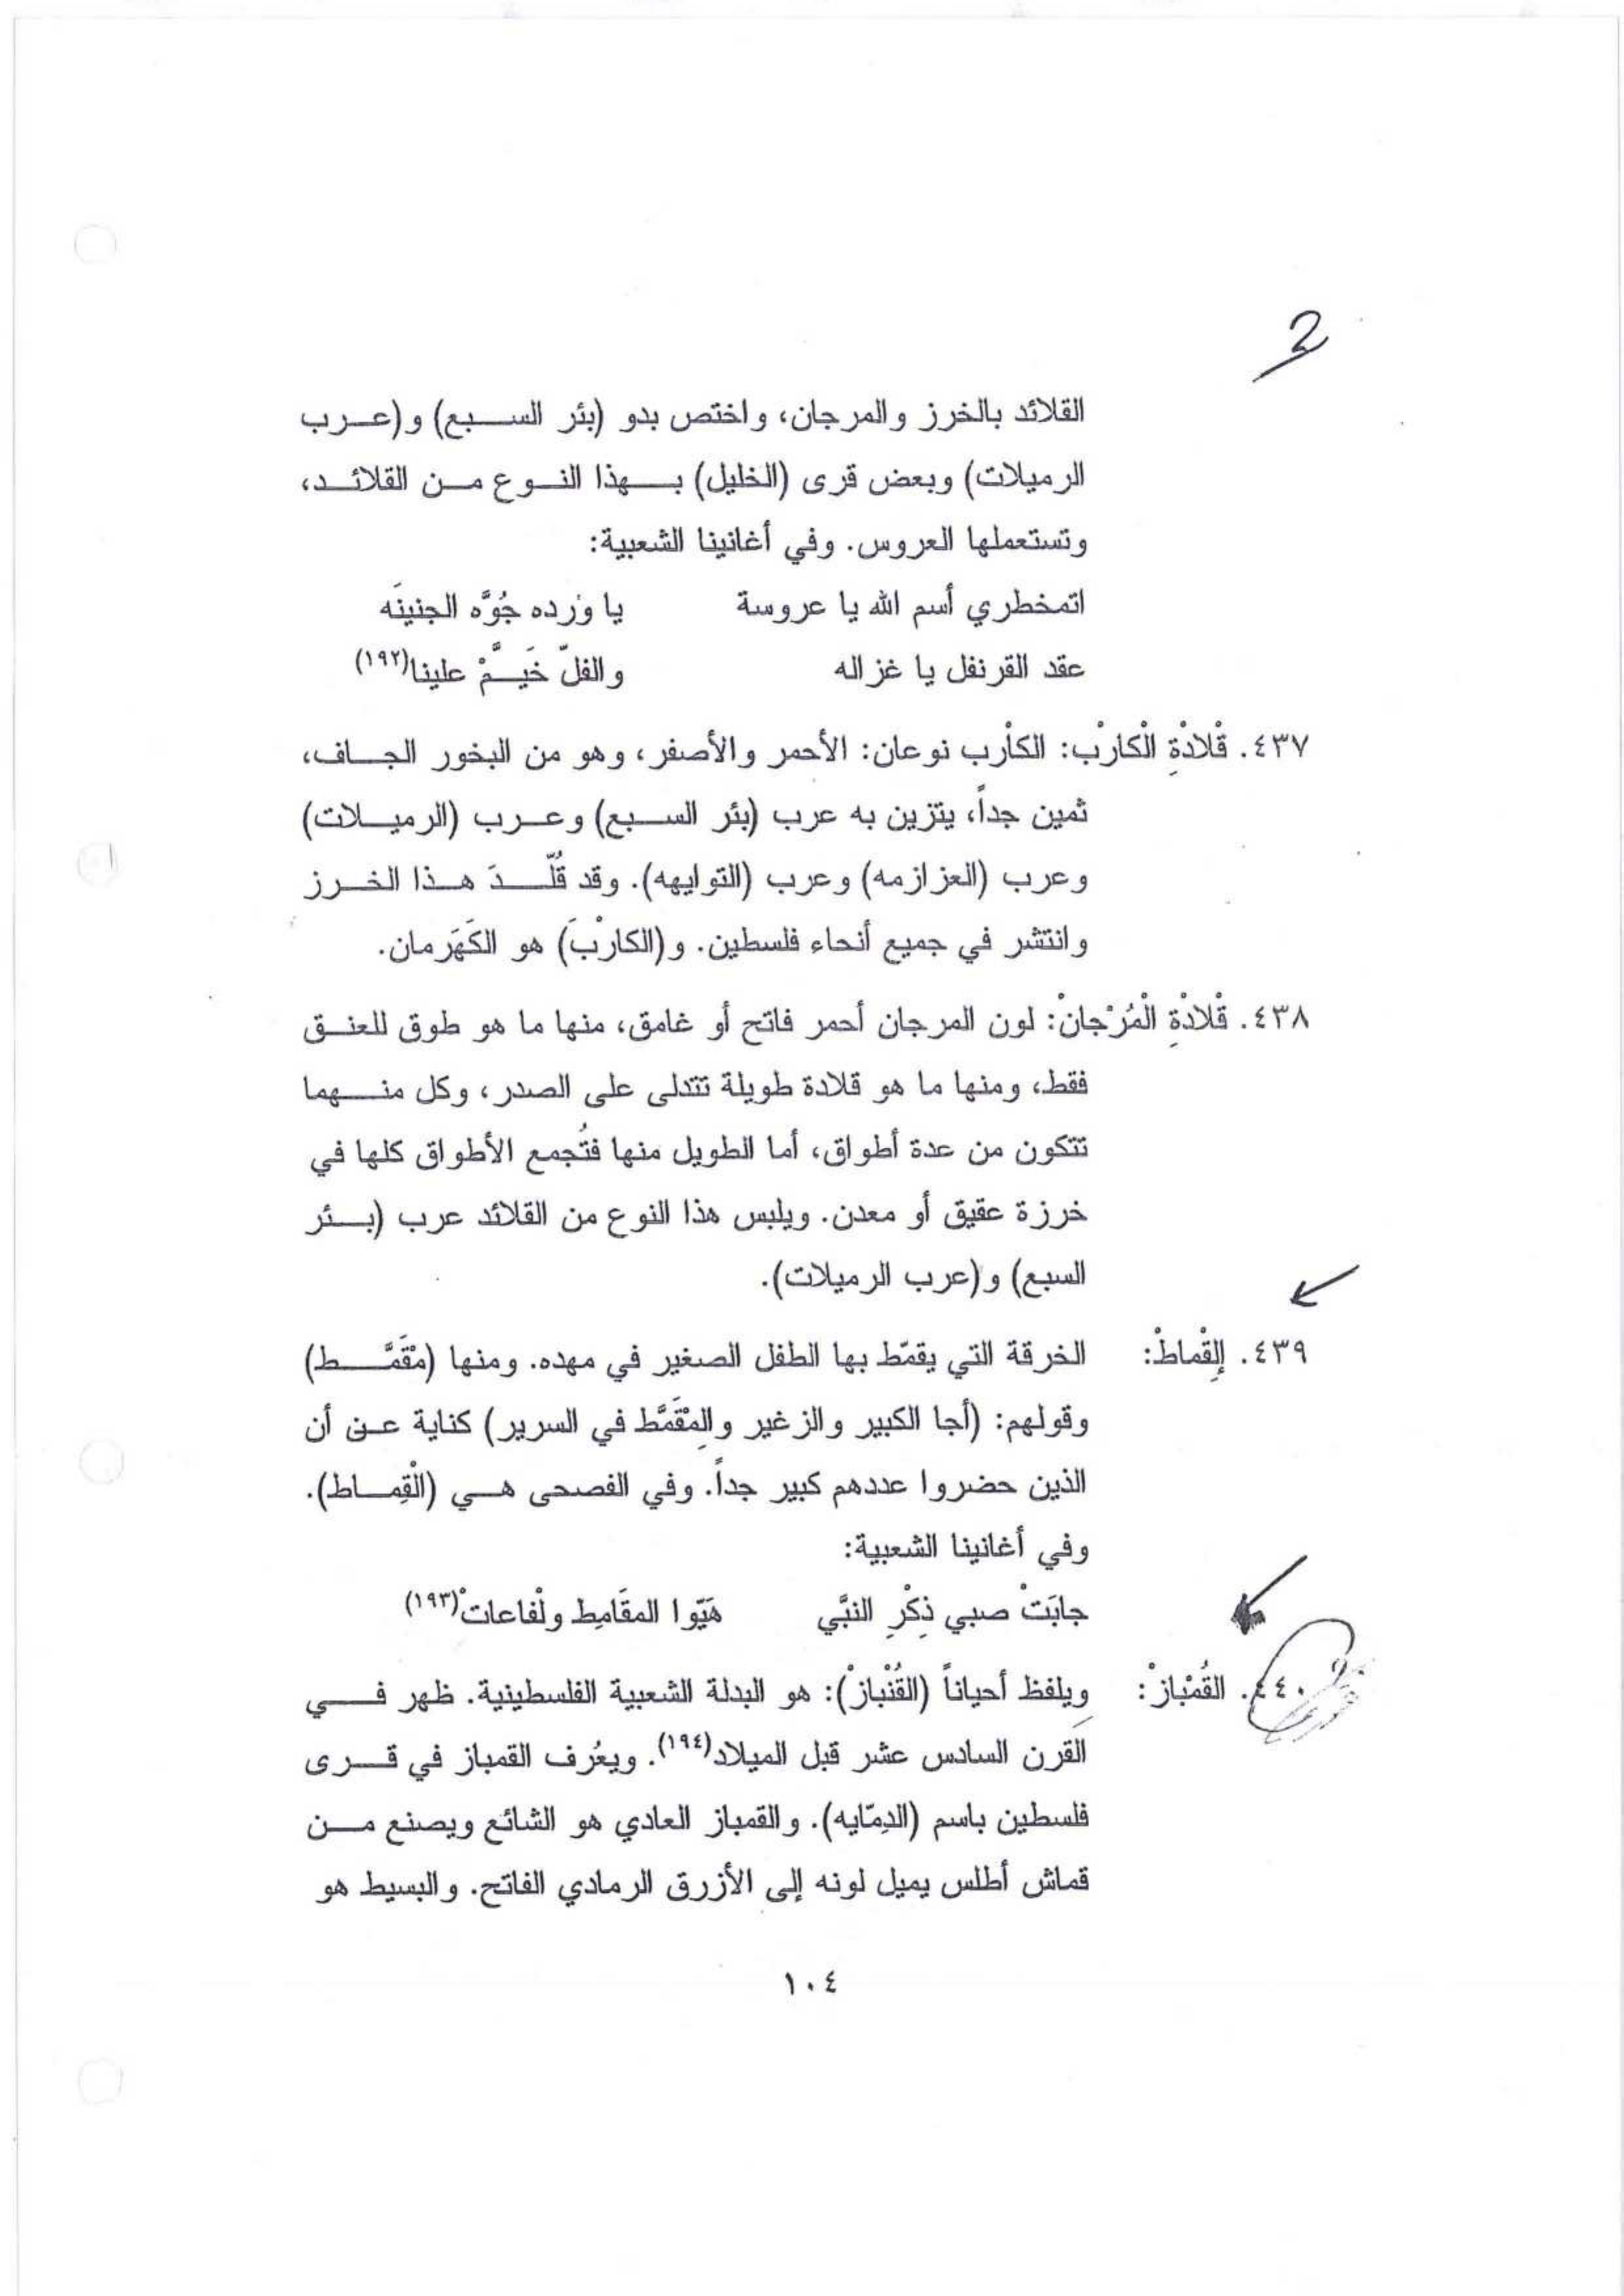 2
القلائد بالخرز والمرجان، واختص بدو (بئر السبع) و(عرب
الرميلات) وبعض قرى (الخليل) بهذا النوع من القلائد،
وتستعملها العروس. وفي أغانينا الشعبية:
اتمخطري أسم الله يا عروسة يا وَرده جُوَّه الجنينَه
عقد القرنفل يا غزاله والفلّ خَيَّمْ علينا(١٩٢)
٤٣٧. قْلادْةِ الْكارْبْ: الكاْرب نوعان: الأحمر والأصفر، وهو من البخور الجاف،
ثمين جداً، يتزين به عرب (بئر السبع) وعرب (الرميلات)
وعرب (العزازمه) وعرب (التوايهه). وقد قُلّدَ هذا الخرز
وانتشر في جميع أنحاء فلسطين. و(الكارْبَ) هو الكَهَرمان.
٤٣٨. قْلادْةِ الْمُرْجانْ: لون المرجان أحمر فاتح أو غامق، منها ما هو طوق للعنق
فقط، ومنها ما هو قلادة طويلة تتدلى على الصدر، وكل منهما
تتكون من عدة أطواق، أما الطويل منها فتُجمع الأطواق كلها في
خرزة عقيق أو معدن. ويلبس هذا النوع من القلائد عرب (بئر
السبع) و(عرب الرميلات).
٤٣٩. إلِقْماطْ: الخرقة التي يقمّط بها الطفل الصغير في مهده. ومنها (مْقَمَّط)
وقولهم: (أجا الكبير والزغير والِمْقَمَّط في السرير) كناية عن أن
الذين حضروا عددهم كبير جداً. وفي الفصحى هي (الْقِماط).
وفي أغانينا الشعبية:
جابَتْ صبي ذِكْرِ النبَّي هَيّوا المقَامِط ولْفاعاتْ(١٩٣)
٤٤٠. القُمْبازْ: ويلفظ أحياناً (القُنْبازْ): هو البدلة الشعبية الفلسطينية. ظهر في
القرن السادس عشر قبل الميلاد(١٩٤). ويعُرف القمباز في قرى
فلسطين باسم (الدِمّايه). والقمباز العادي هو الشائع ويصنع من
قماش أطلس يميل لونه إلى الأزرق الرمادي الفاتح. والبسيط هو
١٠٤